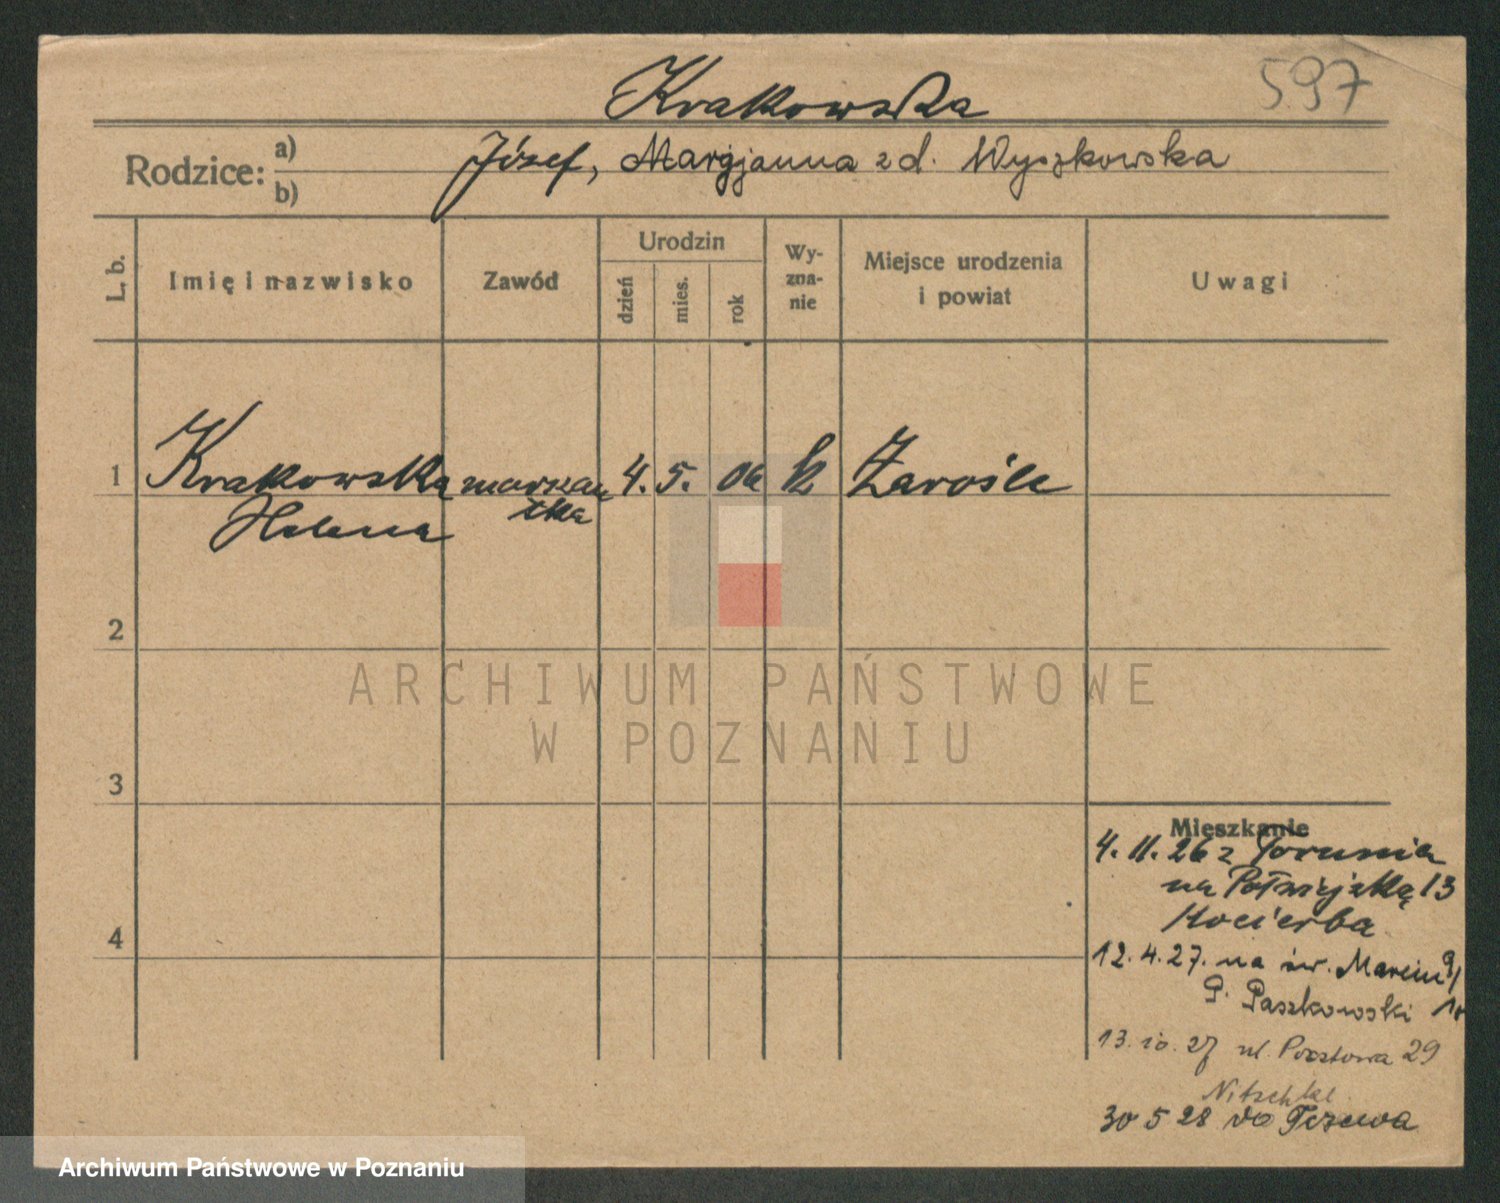 597
Krakowska
Rodzice: a) Józef, Marjjanna z d. Wyszkowska
b)
L. b.
Imię i nazwisko
Zawód
Urodzin
dzień
mies.
rok
Wy-
zna-
nie
Miejsce urodzenia
i powiat
Uwagi
1 Krakowska 4. 5. 06 k Zarośle
Helena
2
3
4
Mieszkanie
4. 11. 26 z Torunia
na Półwiejską 13
Kocierba
12. 4. 27. na św. Marcin 9/10
P. Paszkowski
13. 10. 27 ul. Pocztowa 29
Nitschke
30 5 28 do Tczewa
ARCHIWUM PAŃSTWOWE
W POZNANIU
Archiwum Państwowe w Poznaniu